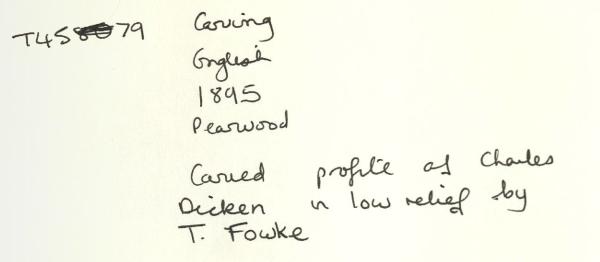 T45 79 Carving
English
1895
Pearwood
Carved profile of Charles
Dicken in low relief by
T. Fowke